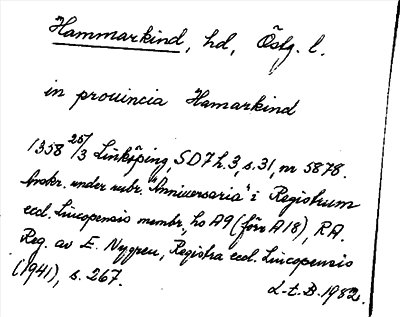 Hammarkind, hd, Östg. l.
in prouincia Hamarkind
1358 25/3 Linköping, SD7 h.3, s.31, nr 5878.
Avskr. under rubr. "Anniuersaria" i Registrum
eccl. Lincopensis membr., hs A9 (förr A18), RA.
Reg. av E. Nygren, Registra eccl. Lincopensis
(1941), s. 267.
L-t. B. 1982.